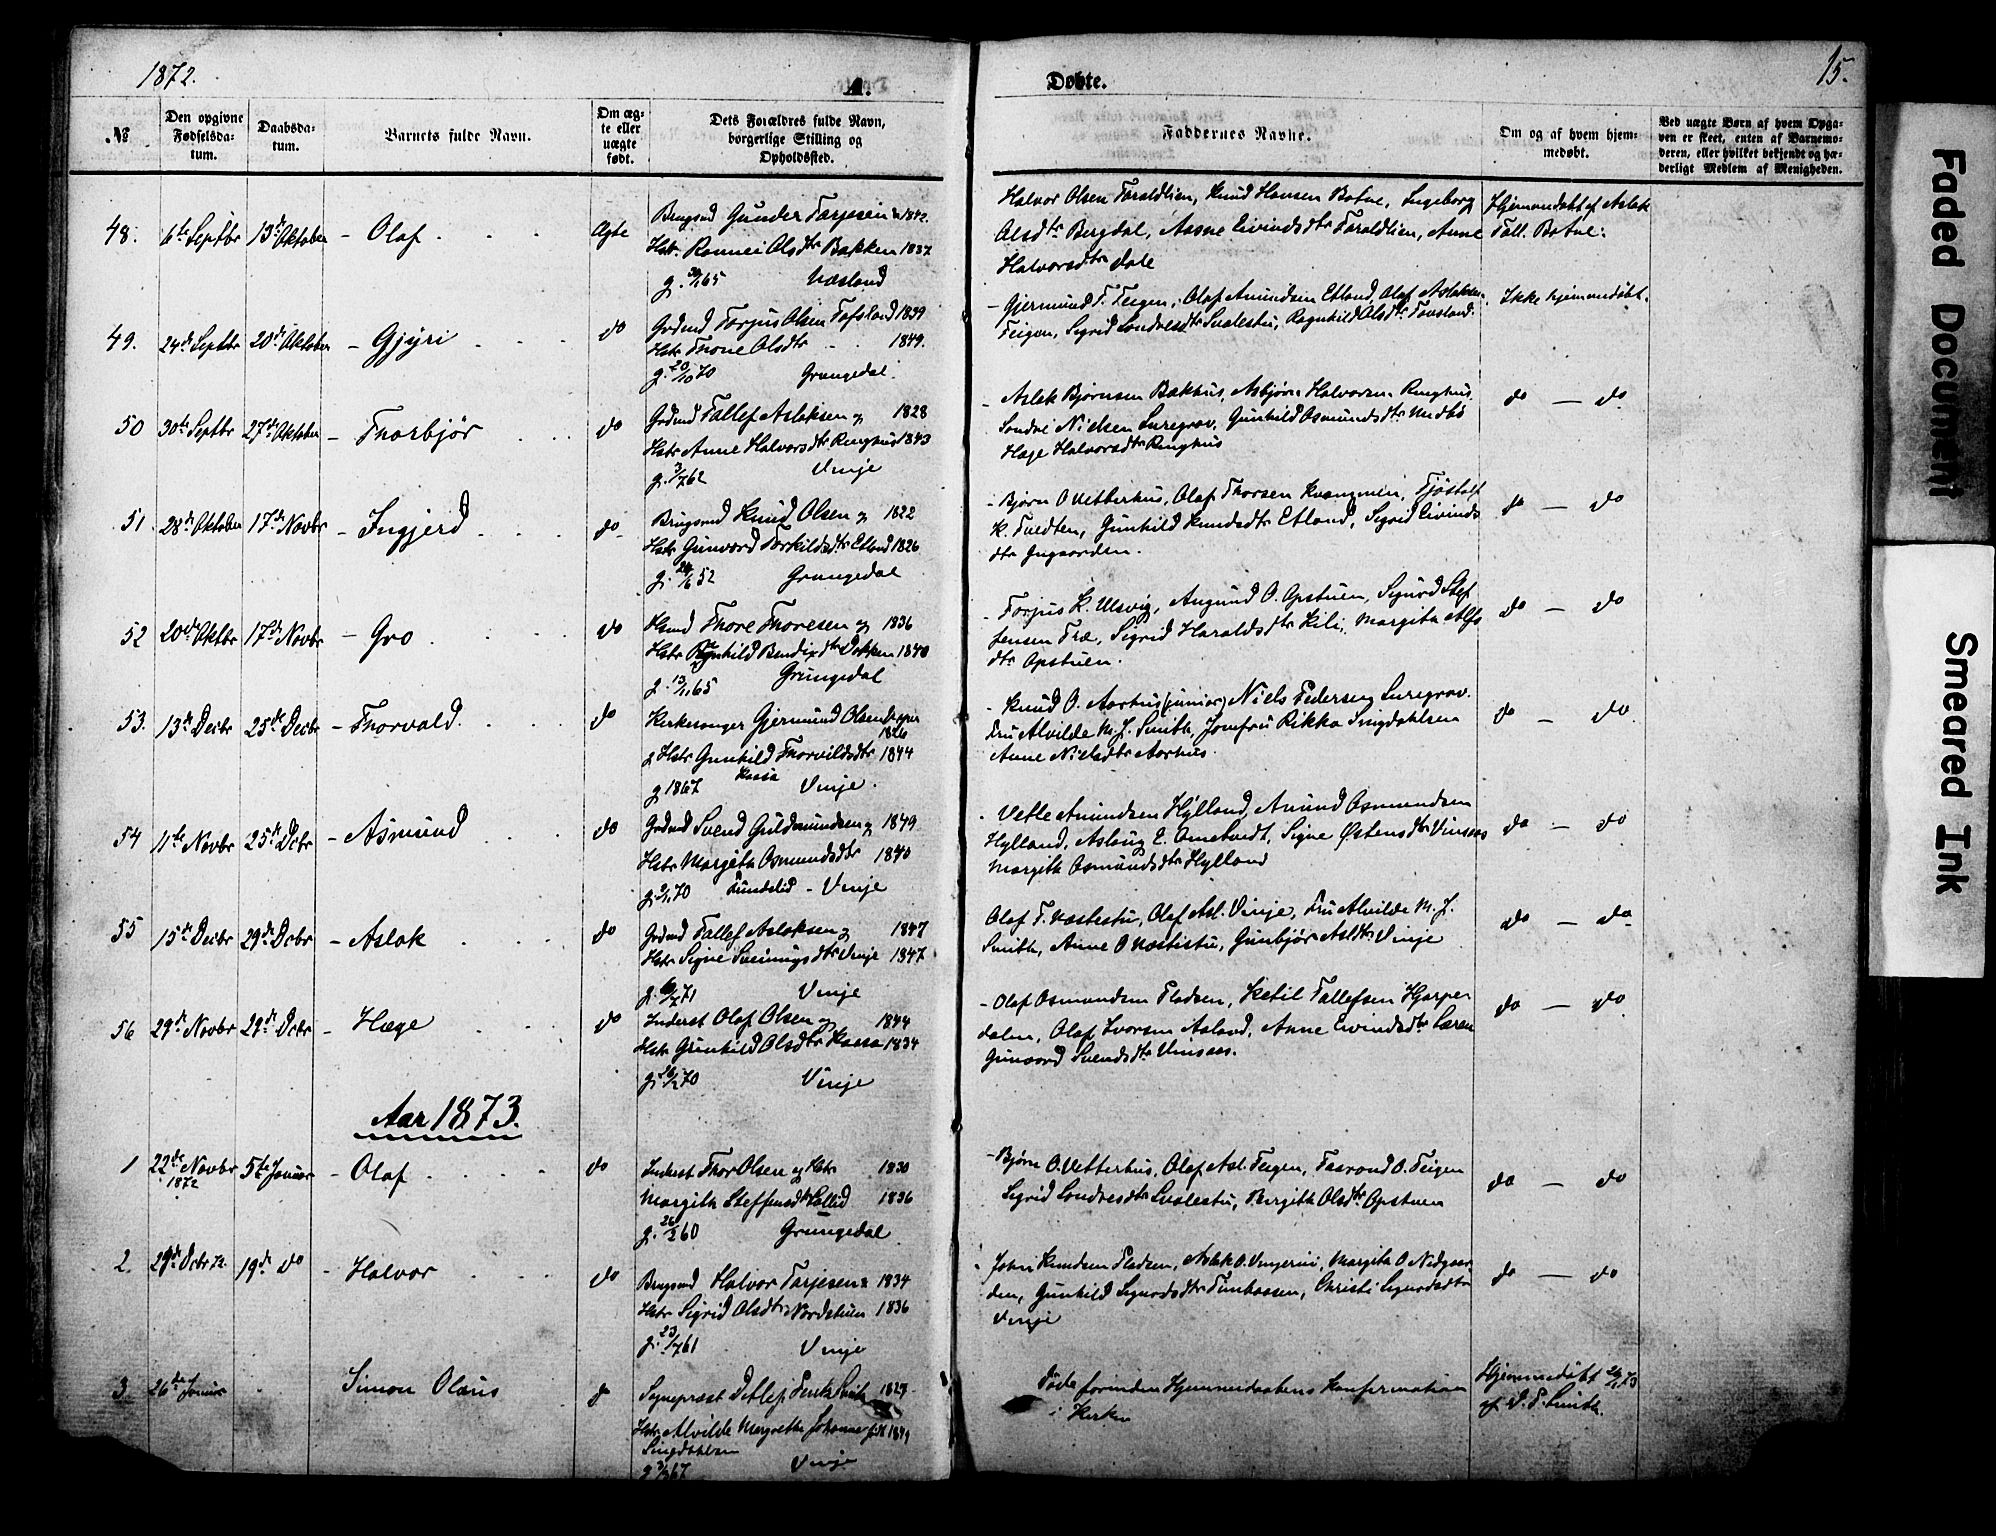 1872.
A.
Døbte.
15.
№
Den opgivne Fødselsdatum.
Daabsdatum.
Barnets fulde Navn.
Om ægte eller uægte født.
Dets Forældres fulde Navn, borgerlige Stilling og Opholdssted.
Faddernes Navne.
Om og af hvem hjemmedøbt.
Ved uægte Børn af hvem Opgaven er skeet, enten af Barnemoderen, eller hvilket bekjendt og hæderligt Medlem af Menigheden.
48. 6te Septbr 13de Oktober - Olaf Ægte
Brugsmd Gunder Tarjesen 1842.
Hstr. Ronnei Olsdtr Bakken 1837
Næsland
Halvor Olsen Taraldlien, Knud Hansen Botne, Ingeborg
Olsdtr Bergdal, Aasne Eivindsdtr Taraldlien, Anne
Halvorsdtr Dale
Hjemmedøbt af Aslak
Tall. Botne.
49. 24de Septbr 20de Oktober - Gjyri do
Grdmd Torjus Olsen Tofsland 1839
Hstr Thone Olsdtr 1849.
g. 20/10 70 Grungedal.
- Gjermund T. Teigen, Olaf Amundsen Etland, Olaf Aslaksen
Teigen, Sigrid Sondresdtr Svalestu, Ragnhild Olsdtr Tovsland.
Ikke hjemmedøbt.
50 30te Septbr 27de Oktober - Thorbjør do
Grdmd Tallef Aslaksen og 1828
Hstr Anne Halvorsdtr Ringhus 1843
g. 3/7 62 Vinje
- Aslak Bjørnsen Bakhus, Asbjørn Halvorsen Ringhus
Sondre Nielsen Suregrav, Gunhild Osmundsdtr Midbø
Hæge Halvorsdtr Ringhus
do - do
51. 28de Oktober 17de Novbr - Ingjerd do
Brugsmd Knud Olsen og 1822
Hstr Gunvord Torkildsdtr Etland 1826
g. 24/6 52 Grungedal
- Bjørn O Vetterhus, Olaf Thorsen Kvangmien, Tjøstolf
K. Tvedten, Gunhild Knudsdtr Etland, Sigrid Eivinds
dtr
do - do
52 20de Oktbr 17de Novbr - Gro do
Thore Thoresen og 1836
Hstr Ragnhild Bendixdtr Dokken 1840
g. 13/11 65 Grungedal
- Torjus K. Ulsvig, Amund O. Opstuen, Sigurd Stef
fensen Træ, Sigrid Haraldsdtr Kili, Margith Alfs
dtr Opstuen.
do - do
53. 13de Decbr 25de Decbr - Thorvald do
Kirkesanger Gjermund Olsen 1826
g Hstr Gunhild Thorvildsdtr 1844
g 1867 Vinje.
- Knud O. Aarhus (junior), Niels Pedersen Suregrav.
Fru Alvilde M. J. Smith, Jomfru Rikka Singdahlsen
Anne Nielsdtr Aarhus.
do - do
54 11te Novbr 25de Dcbr - Asmund do
Grdmd Svend Guldmundsen og 1849
Hstr Margith Osmundsdtr 1840
g. 2/1 70 Vinje
- Vetle Amundsen Hylland, Amund Osmundsen
Hylland, Aslaug E. Ometvedt, Signe Østensdtr Vinsaas
Margith Osmundsdtr Hylland
do - do
55 15de Decbr 29de Dcbr - Aslak do
Grdmd Tallef Aslaksen og 1847
Hstr Signe Sveinungsdtr Vinje 1847
g. 6/7 71 Vinje
Olaf T. Næstestu, Olaf Asl. Vinje, Fru Alvilde M. J.
Smith, Anne O Næstestu, Gunbjør Asldtr Vinje
do - do
56 29de Novbr 29de Dcbr - Hæge do
Inderst Olaf Olsen og 1844
Hstr Gunhild Olsdtr Kaasa 1834
g. 26/12 70 Vinje
- Olaf Osmundsen Pladsen, Ketil Tallefsen Hjarpe
dalen, Olaf Ivorsen Aaland, Anne Eivindsdtr
Gunvord Svendsdtr Vinsaas.
do - do
Aar 1873.
1 22de Novbr 1872 5te Januar - Olaf do
Inderst Thor Olsen og Hstr 1830
Margith Steffensdtr 1836
g. 26/2 60 Grungedal
- Bjørn O. Vetterhus, Olaf Asl. Teigen, Taarand O. Teigen
Sigrid Sondresdtr Svalestu, Bergith Olsdtr Opstuen
do - do
2. 29de Dcbr 72. 19de do - Halvor do
Brugsmd Halvor Tarjesen & 1834
Hstr Sigrid Olsdtr Nordstuen 1836
g. 23/7 61 Vinje
John Knudsen Pladsen, Aslak O. Vingerui, Margith O Nidgaar
den, Gunhild Sigurdsdtr Timbaasen, Christi Sigurdsdtr
Vinje
do - do
3. 26de Januar Simon Olaus do
Sogneprest Ditlef Smith 1829
Hstr Alvilde Margrethe Johanne 1849
Singdahlsen
g 3/9 67 Vinje
Døde forinden Hjemmedaabens Konfirmation
i Kirken
Hjemmedøbt
af D. P. Smith.
Faded Document
Smeared Ink